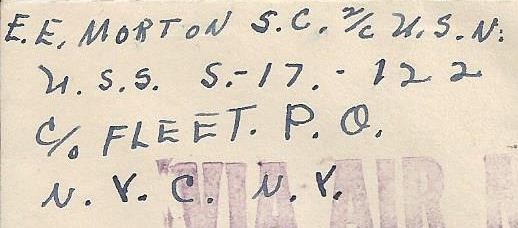 E.E. MORTON S.C. 2/c U.S.N.
U.S.S. S.-17.-122
C/o FLEET. P.O.
N.Y.C. N.Y.
VIA AIR